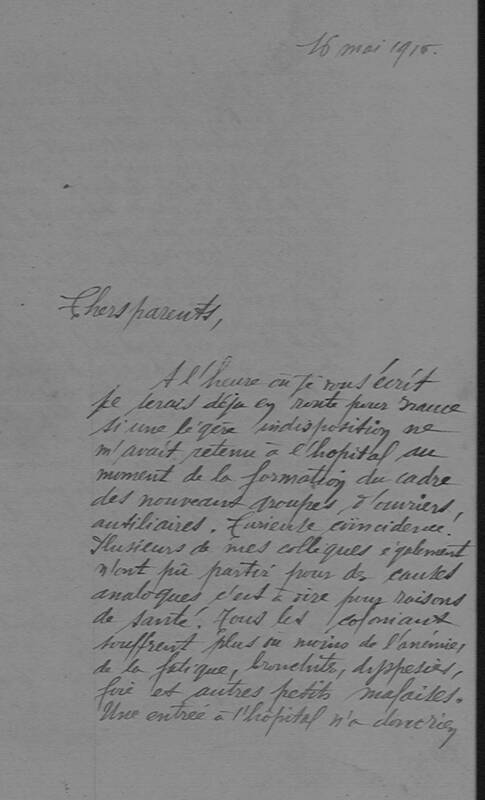 16 mai 1916.
Chers parents,
A l'heure où je vous écrit
je serais déja en route pour France
si une légère indisposition ne
m'avait retenu à l'hopital au
moment de la formation du cadre
des nouveaux groupes d'ouvriers,
auxiliaires. Curieuse coïncidence!
Plusieurs de mes collègues également
n'ont pû partir pour des causes
analogues c'est à dire pour raisons
de santé. Tous les coloniaux
souffrent plus ou moins de l'anémie,
de la fatigue, bronchite, dyspepsies,
foie et autres petits malaises.
Une entrée à l'hôpital n'a donc rien